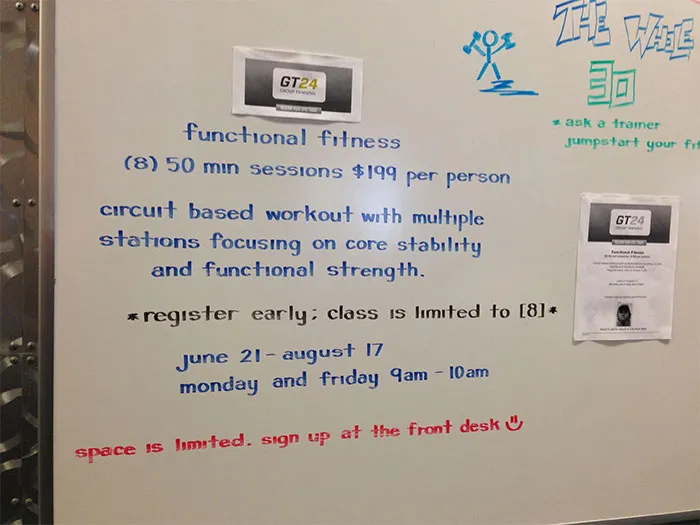 THE WHOLE
30
* ask a trainer
jumpstart your fit
GT24
GROUP TRAINING
functional fitness
(8) 50 min sessions $199 per person
circuit based workout with multiple
stations focusing on core stability
and functional strength.
*register early; class is limited to [8]*
june 21 - august 17
monday and friday 9am - 10am
space is limited. sign up at the front desk
GT24
GROUP TRAINING
Functional Fitness